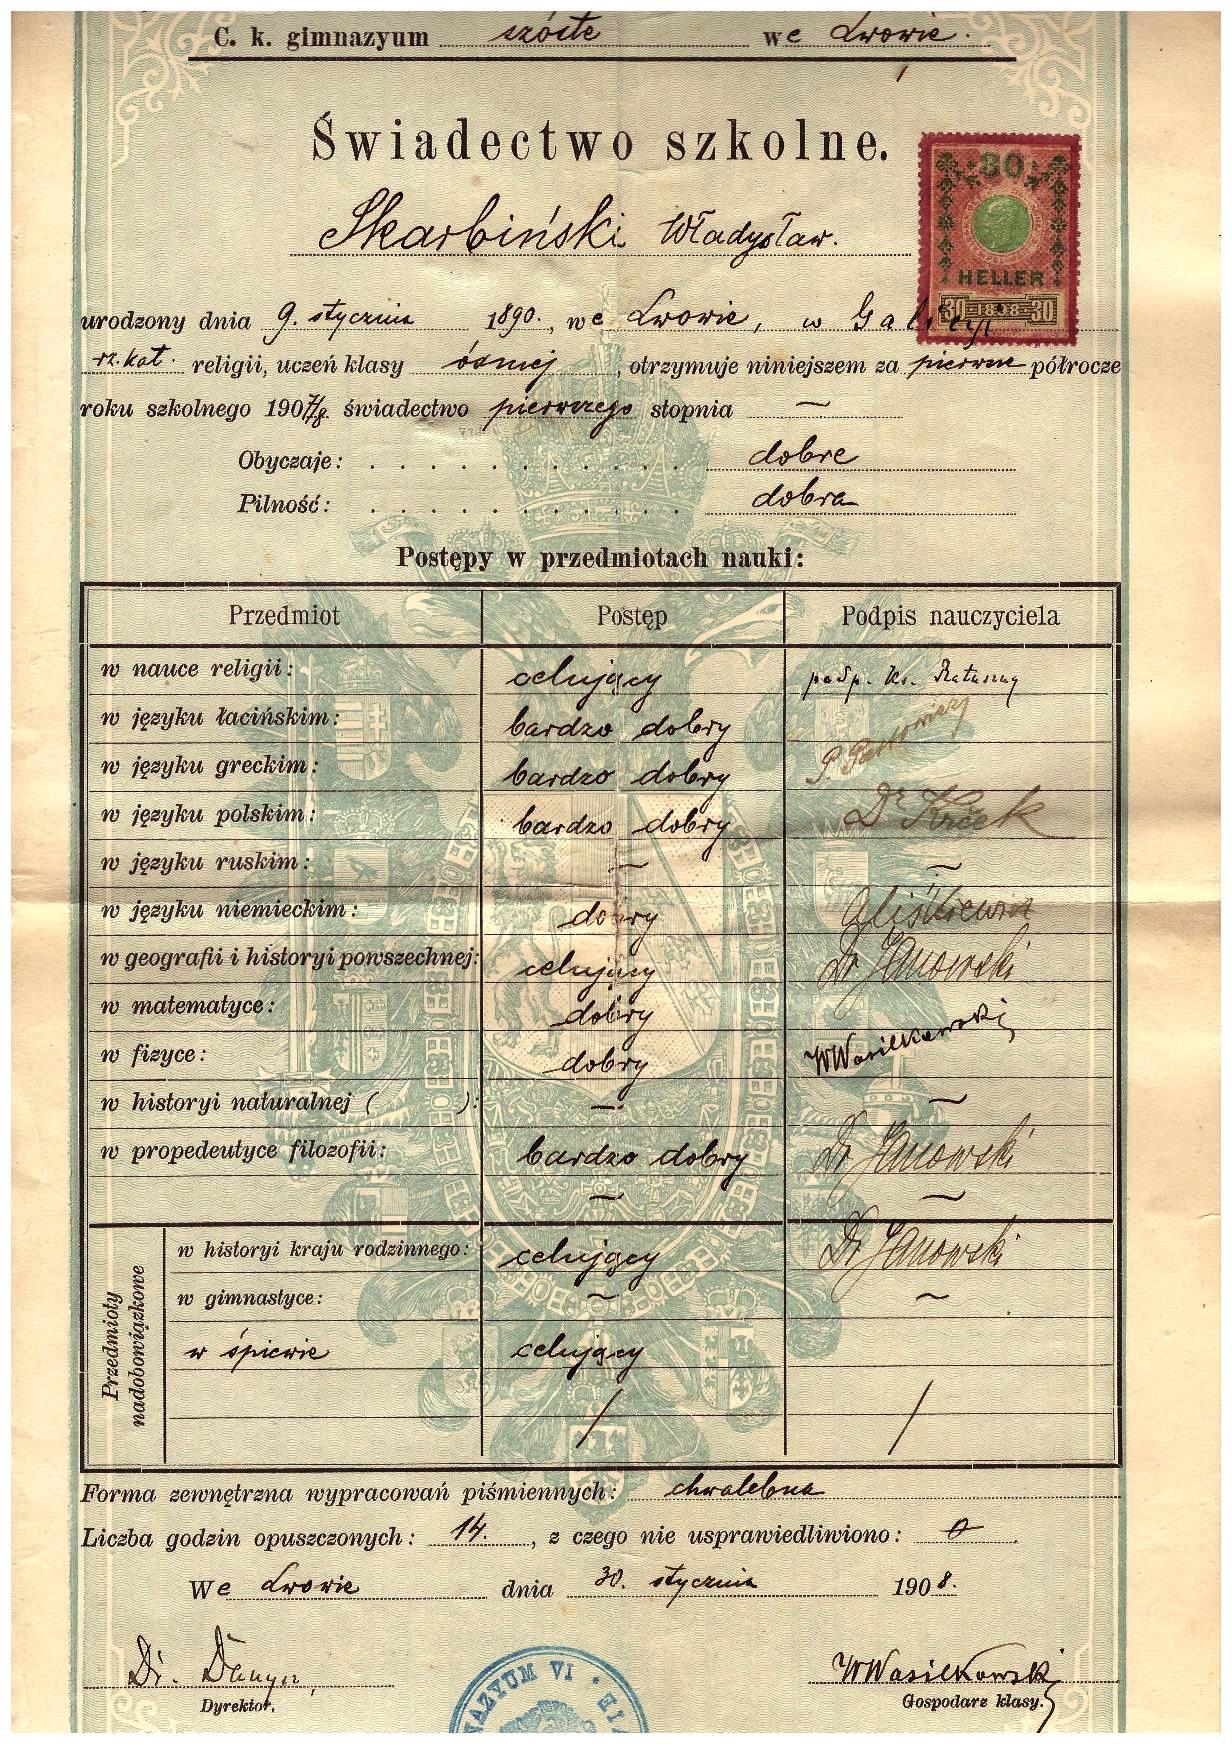 C. k. gimnazyum szóste we Lwowie.
Świadectwo szkolne.
Skarbiński Władysław.
30
HELLER
30 1898 30
urodzony dnia 9. stycznia 1890., we Lwowie, w Galicyi
rz. kat. religii, uczeń klasy ósmej, otrzymuje niniejszem za pierwsze półrocze
roku szkolnego 1907/8. świadectwo pierwszego stopnia —
Obyczaje: . . . . . . . . . . . . dobre
Pilność: . . . . . . . . . . . . dobra
Postępy w przedmiotach nauki:
Przedmiot Postęp Podpis nauczyciela
w nauce religii: celujący podp. ks.
w języku łacińskim: bardzo dobry
w języku greckim: bardzo dobry
w języku polskim: bardzo dobry Dr Krček
w języku ruskim: — —
w języku niemieckim: dobry
w geografii i historyi powszechnej: celujący Dr Janowski
w matematyce: dobry
w fizyce: dobry WWasilkowski
w historyi naturalnej ( ): — —
w propedeutyce filozofii: bardzo dobry Dr Janowski
— —
Przedmioty nadobowiązkowe
w historyi kraju rodzinnego: celujący Dr Janowski
w gimnastyce: — —
w śpiewie celujący
Forma zewnętrzna wypracowań piśmiennych: chwalebna
Liczba godzin opuszczonych: 14., z czego nie usprawiedliwiono: 0
We Lwowie dnia 30. stycznia 1908.
Dr. WWasilkowski
Dyrektor. Gospodarz klasy.